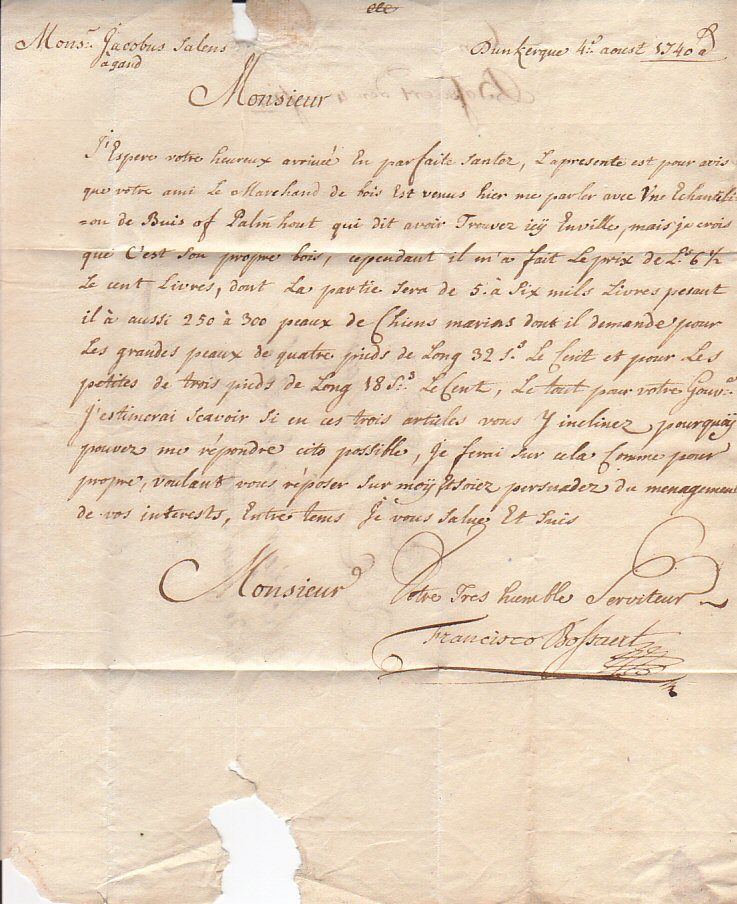 Mons.r Jacobus Salens
a gand
Dunkerque 4.e aoust 1740
Monsieur
J'Espere votre heureux arrivée En parfaite Santez, La presente est pour avis
que votre ami Le Marchand de bois Est venus hier me parler avec Vne Echantill
=on de Buis of Palmhout qui dit avoir Trouvez icÿ Enville, mais je crois
que C'est Son propre bois, cependant il m'a fait Le prix de L.s 6 1/2
Le cent Livres, dont La partie Sera de 5. à Six mils Livres pesant
il à aussi 250 à 300 peaux de Chiens marins dont il demande pour
Les grandes peaux de quatre pieds de Long 32 s.s Le Cent et pour Les
petites de trois pieds de Long 18 S.s Le Cent, Le tout pour votre Gouv.e
J'estimerai Scavoir Si en ces trois articles vous Y inclinez pourquoÿ
pouvez me répondre cito possible, Je ferai Sur cela Comme pour
propre, voulant vous réposer Sur moÿ Et Soiez persuadez du menagement
de vos interests, Entre tems Je vous Salue Et Suis
Monsieur
Votre Tres humble Serviteur
Francisco Bossaert